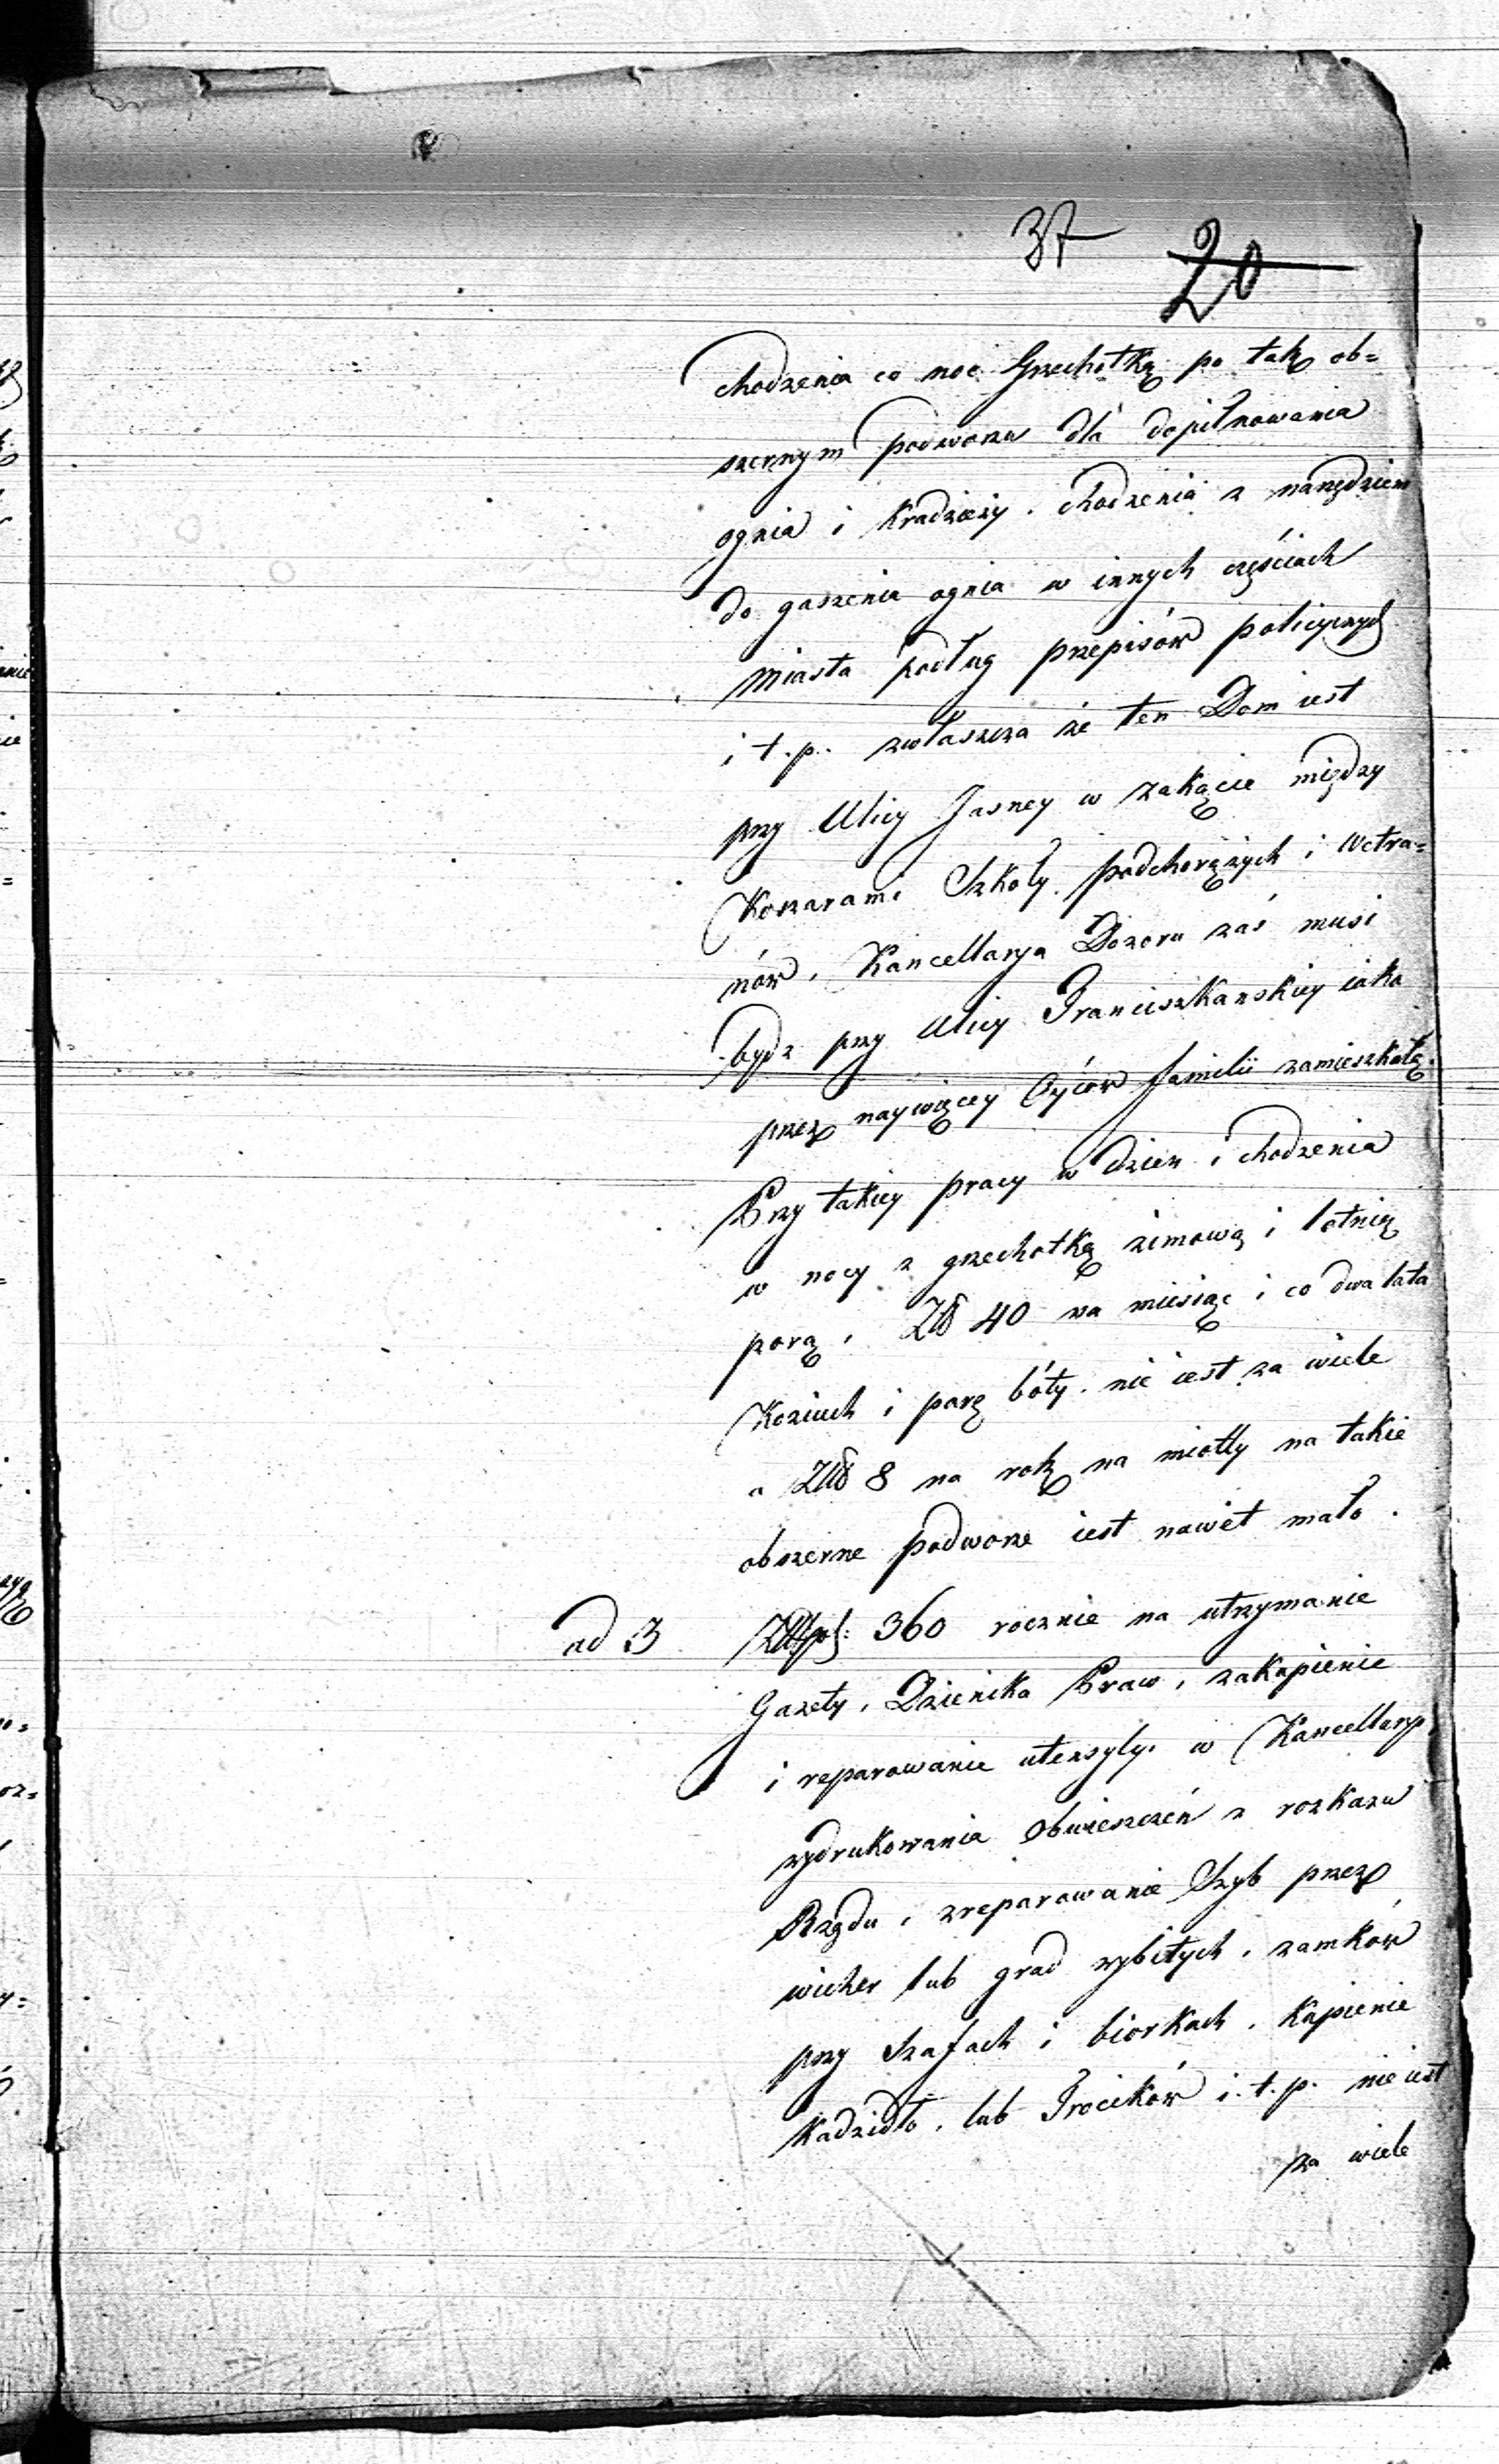 37 20
chodzenia co noc Grzechotką po tak ob=
szernym podworzu dla dopilnowania
ognia i Kradzieży. chodzenia z narzędziem
do gaszenia ognia w innych częściach
Miasta podług przepisów policyinych
i t. p. zwłaszcza że ten Dom iest
przy Ulicy Jasney w zakącie między
Koszarami Szkoły podchorążych i Wetra=
nów, Kancellarya Dozoru zaś musi
bydz przy Ulicy Franciszkanskiey iako
przez naywięcey Oyców familii zamieszkałą.
Przy takiey pracy w dzien i chodzenia
w nocy z grzechotką zimową i lotnią
porą, Zł 40 na miesiąc i co dwa lata
Koziuch i parę bóty. nie iest za wiele
a Zł 8 na rok na miotły na takie
obszerne podworze iest nawet mało.
ad 3 Złłpol: 360 rocznie na utrzymanie
Gazety, Dzienika Praw, zakupienie
i reparowanie utensyly. w Kancellaryi
wydrukowania Obwieszczeń z rozkazu
Rządu, zreparowanie Szyb przez
wicher lub grad wybitych, zamków
przy Szafach i biorkach, Kupienie
Kadzidło, lub Trocików i. t. p. nie iest
za wiele